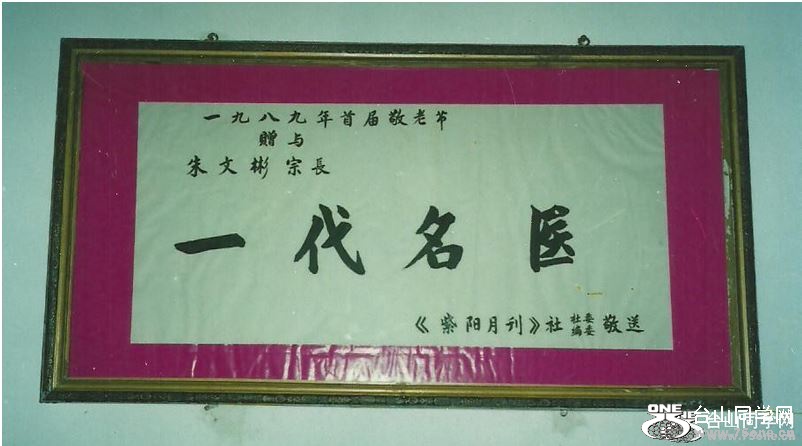 一九八九年首届敬老节
贈与
朱文彬宗長
一代名医
《紫阳月刊》社 社委 编委 敬送
ONE
台山同学网